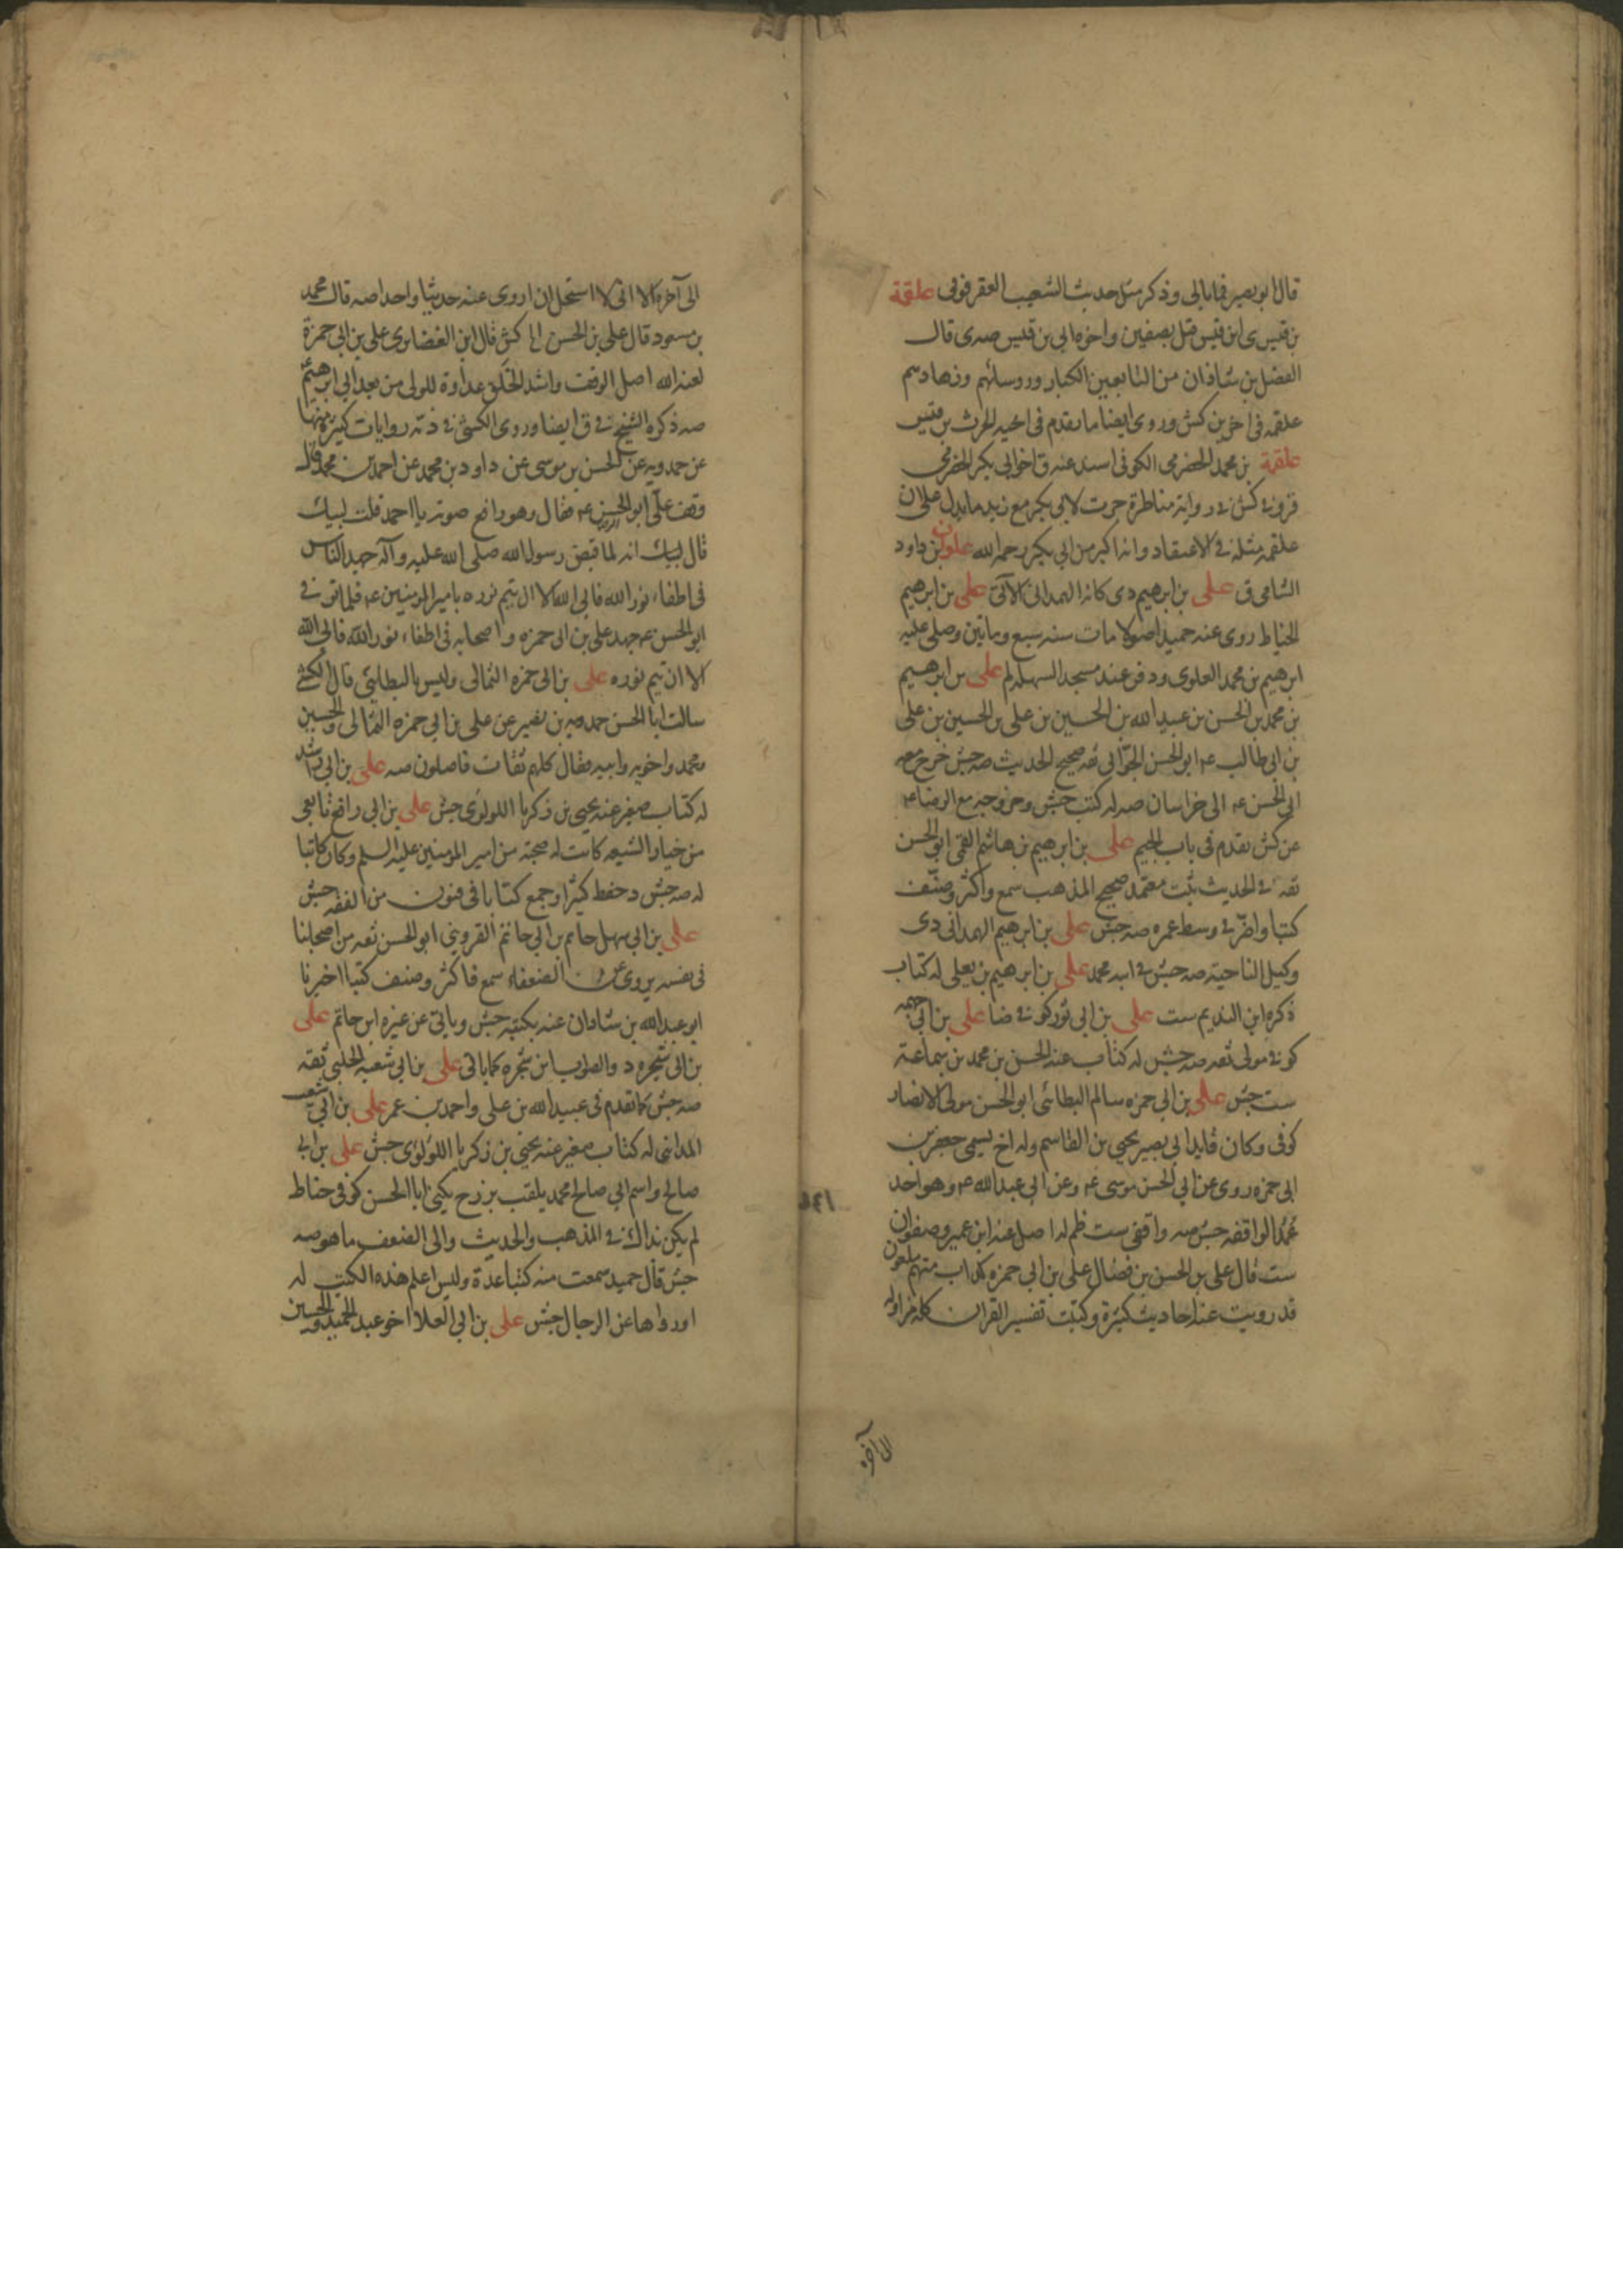 قال ابو بصير فما بالى وذكر مثل حديث الشعيب العقرقوفى علقمة
بن قيس ى ابن قيس قتل بصفين واخوه ابى بن قيس صه ى قال
الفضل بن شاذان من التابعين الكبار ورؤسائهم وزهادهم
علقمه فى اخرين كش وروى ايضا ما تقدم فى اخيه الحرث بن قيس
علقمة بن محمد الحضرمى الكوفى اسند عنه ق اخو ابى بكر الحضرمى
قر وفى كش فى رواية مناظرة جرت لابى بكر مع زيد ما يدل على ان
علقمه مثله فى الاعتقاد وانه اكبر من ابى بكر رحمه الله علون بن داود
الشامى ق على بن ابرهيم دى كانه الهمدانى الآتى على بن ابرهيم
الخياط روى عنه حميد اصولا مات سنه سبع وماتين وصلى عليه
ابرهيم بن محمد العلوى ودفن عند مسجد السهله لم على بن ابرهيم
بن محمد بن الحسن بن عبيد الله بن الحسين بن على بن الحسين بن على
بن ابى طالب عم ابو الحسن الجوّانى ثقه صحيح الحديث صه جش خرج مع
ابى الحسن عم الى خراسان صه له كتب جش وخروجه مع الرضا عم
عن كش تقدم فى باب الجيم على بن ابرهيم بن هاشم القمى ابو الحسن
ثقه فى الحديث ثبت معتمد صحيح المذهب سمع واكثر وصنّف
كتبا واضرّ فى وسط عمره صه جش على بن ابرهيم الهمدانى دى
وكيل الناحية صه جش فى ابنه محمد على بن ابرهيم بن يعلى له كتاب
ذكره ابن النديم ست على بن ابى ثور كوفى ضا على بن ابى جهمه
كوفى مولى ثقه صه جش له كتاب عنه الحسن بن محمد بن سماعة
ست جش على بن ابى حمزه سالم البطائنى ابو الحسن مولى الانصار
كوفى وكان قايد ابى بصير يحيى بن القاسم وله اخ يسمى جعفر بن
ابى حمزه روى عن ابى الحسن موسى عم وعن ابى عبد الله عم وهو احد
عُمُد الواقفه جش صه واقفى ست ظم له اصل عنه ابن عمير وصفوان
ست قال على بن الحسن بن فضال على بن ابى حمزه كذاب متهم ملعون
قد رويت عنه احاديث كثيرة وكتبت تفسير القران كله من اوله
الى آخره
الى آخره الا انى لا استحل ان اروى عنه حديثا واحدا صه قال محمد
بن مسعود قال على بن الحسن الخ كش قال ابن الغضايرى على بن ابى حمزة
لعنه الله اصل الوقف واشد الخلق عداوة للولى من بعد ابى ابرهيم عم
صه ذكره الشيخ فى ق ايضا وروى الكشى فى ذمّه روايات كثيرة منها
عن حمدويه عن الحسن بن موسى عن داود بن محمد عن احمد بن محمد قال
وقف علّى ابو الحسن عم فقال وهو رافع صوته يا احمد قلت لبيك
قال لبيك انه لما قبض رسول الله صلى الله عليه وآله جهد الناس
فى اطفاء نور الله فابى الله الا ان يتم نوره بامير المومنين عم فلما توفى
ابو الحسن عم جهد على بن ابى حمزه واصحابه فى اطفاء نور الله فابى الله
الا ان يتم نوره على بن ابى حمزه الثمالى وليس بالبطاينى قال الكشى
سالت ابا الحسن حمدويه بن نصير عن على بن ابى حمزه الثمالى والحسين
ومحمد واخويه وابيه فقال كلهم ثقات فاضلون صه على بن ابى راشد
له كتاب صغير عنه يحيى بن زكريا اللولوى جش على بن ابى رافع تابعى
من خيار الشيعه كانت له صحبة من امير المومنين عليه السلم وكان كاتبا
له صه جش د حفظ كثيرا وجمع كتابا فى فنون من الفقه جش
على بن ابى سهل حاتم بن ابى حاتم القزوينى ابو الحسن ثقه من اصحابنا
فى نفسه يروى عن الضعفاء سمع فاكثر وصنف كتبا اخبرنا
ابو عبد الله بن شاذان عنه بكتبه جش وياتى عن غيره ابن حاتم على
بن ابى شجره د والصواب ابن شجره كما ياتى على بن ابى شعبه الحلبى ثقه
صه جش كما تقدم فى عبيد الله بن على واحمد بن عمر على بن ابى شعيب
المداينى له كتاب صغير عنه يحيى بن زكريا اللؤلؤى جش على بن ابى
صالح واسم ابى صالح محمد يلقب بزرج يكنى ابا الحسن كوفى حناط
لم يكن بذاك فى المذهب والحديث والى الضعف ما هو صه
جش قال حميد سمعت منه كتبا عدة وليس اعلم هذه الكتب له
او رواها عن الرجال جش على بن ابى العلا اخو عبد الحميد والحسين